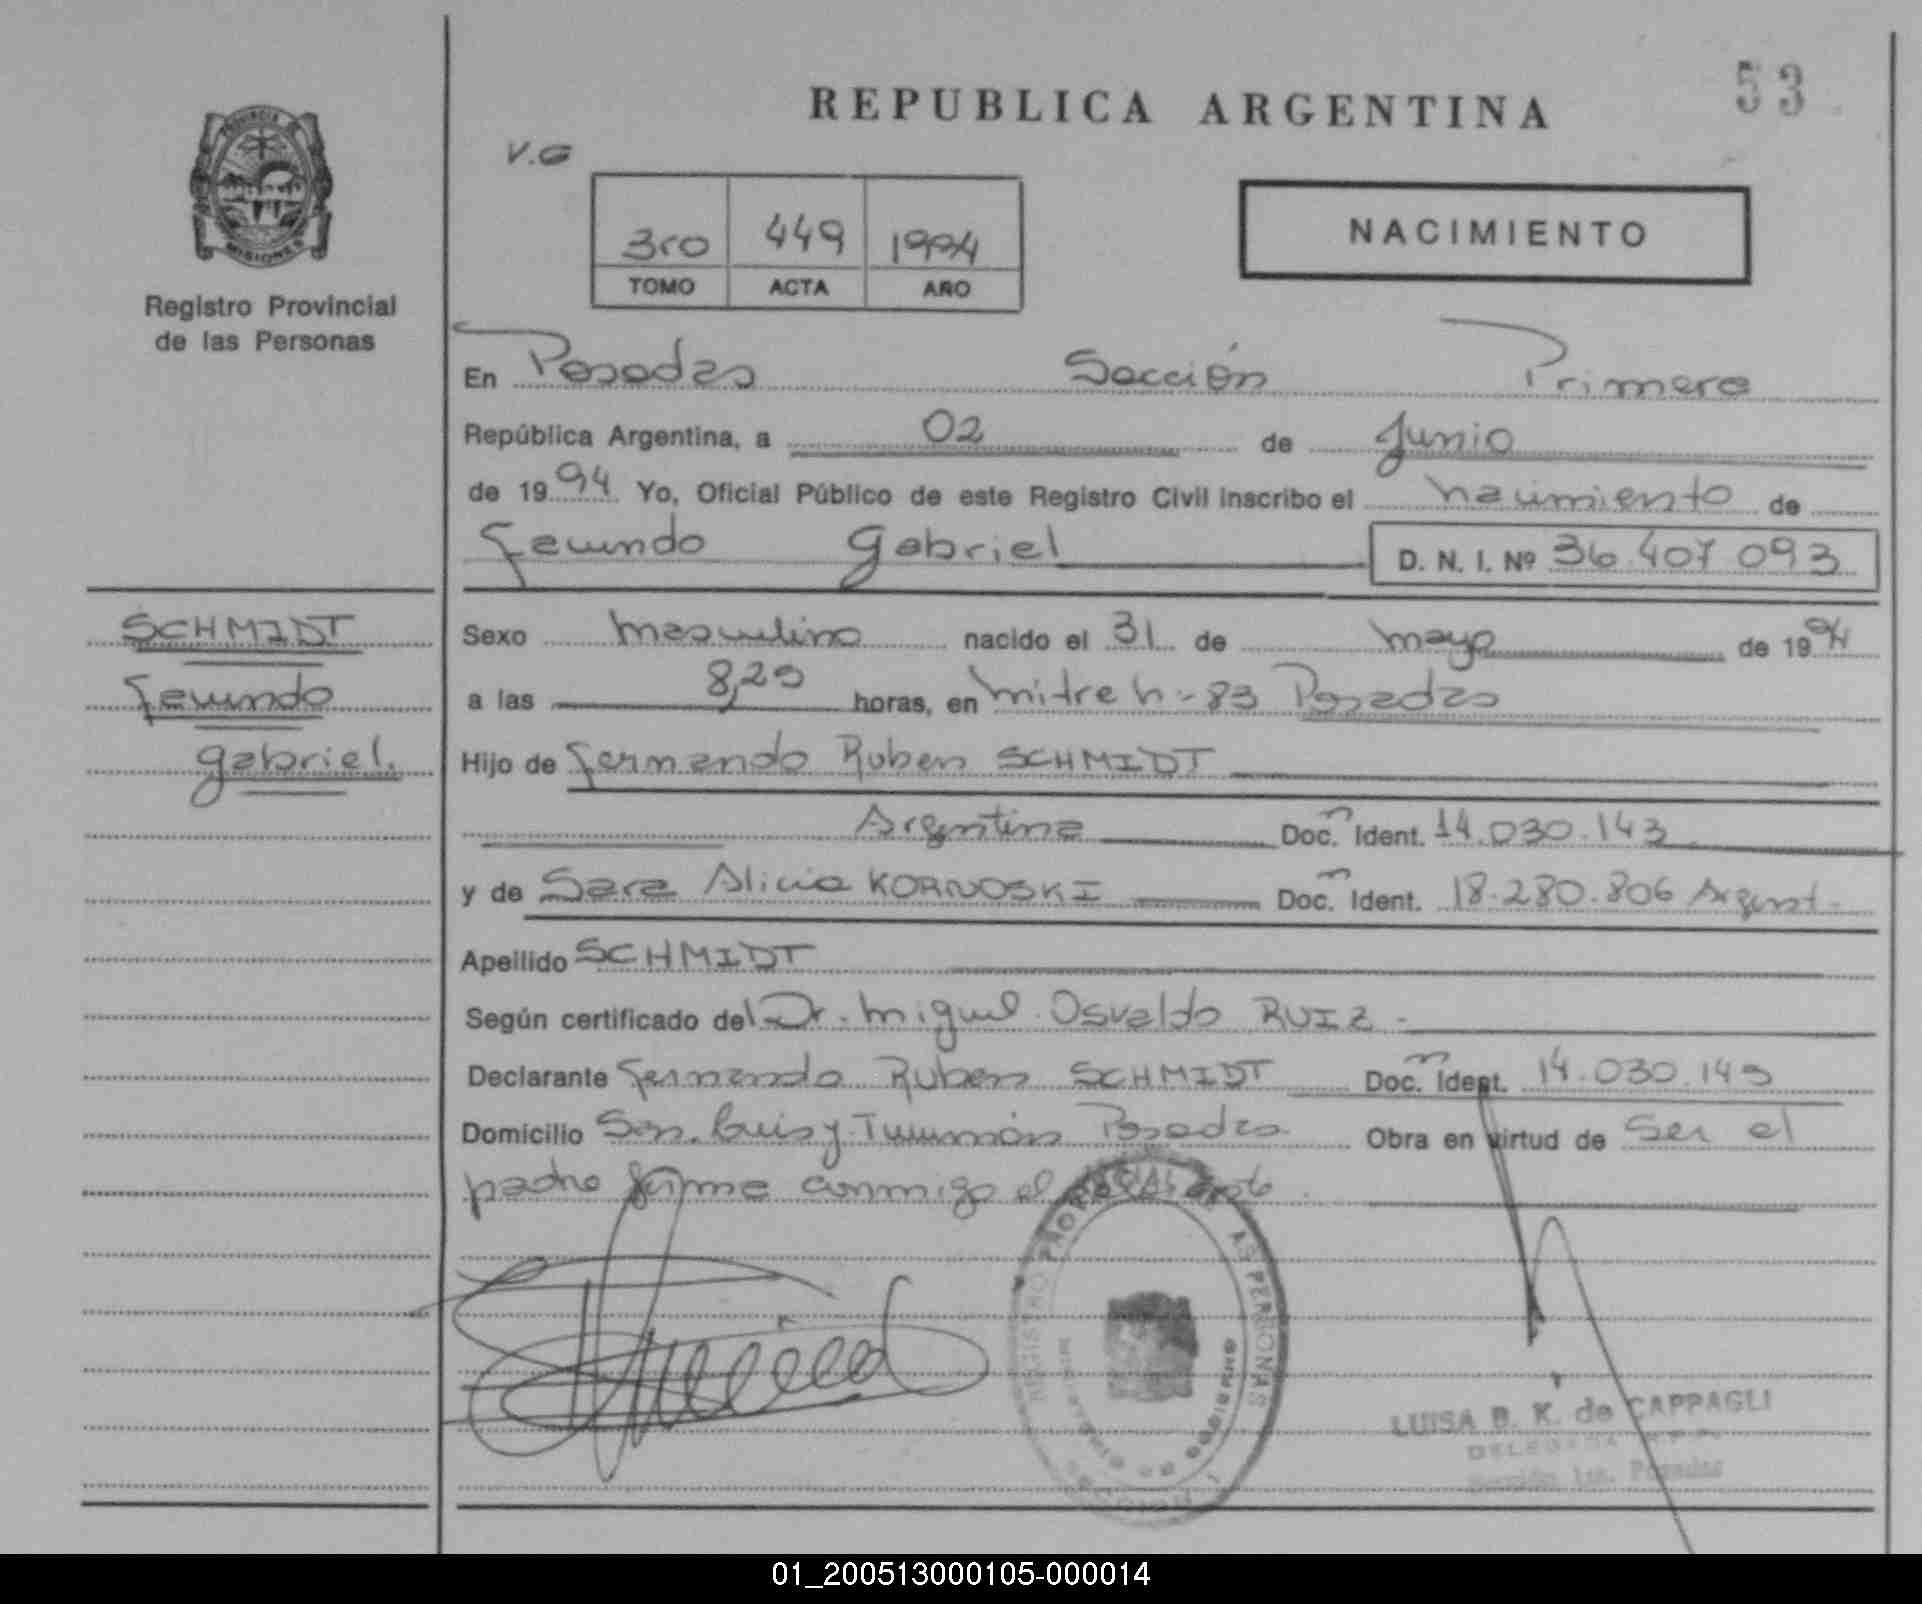 53
REPUBLICA ARGENTINA
V.G
PROVINCIA DE MISIONES
Registro Provincial
de las Personas
3ro 449 1994
TOMO ACTA AÑO
NACIMIENTO
En Posadas Sección Primera
República Argentina, a 02 de Junio
de 1994 Yo, Oficial Público de este Registro Civil inscribo el nacimiento de
Facundo Gabriel D. N. I. Nº 36.407.093
SCHMIDT
Facundo
Gabriel.
Sexo masculino nacido el 31 de mayo de 1994
a las 8,25 horas, en Mitre n- 83 Posadas
Hijo de Fernando Ruben SCHMIDT
Argentina Doc. Ident. 14.030.143
y de Sara Alicia KORNOSKI Doc. Ident. 18.280.806 Argent.
Apellido SCHMIDT
Según certificado del Dr. Miguel Osvaldo RUIZ -
Declarante Fernando Ruben SCHMIDT Doc. Ident. 14.030.143
Domicilio San Luis y Tucumán Posadas Obra en virtud de ser el
padre firma conmigo el
REGISTRO PROVINCIAL DE LAS PERSONAS
MINISTERIO DE GOBIERNO
SECCION 1
LUISA B. K. de CAPPAGLI
DELEGADA
Sección 1ra. Posadas
01_200513000105-000014